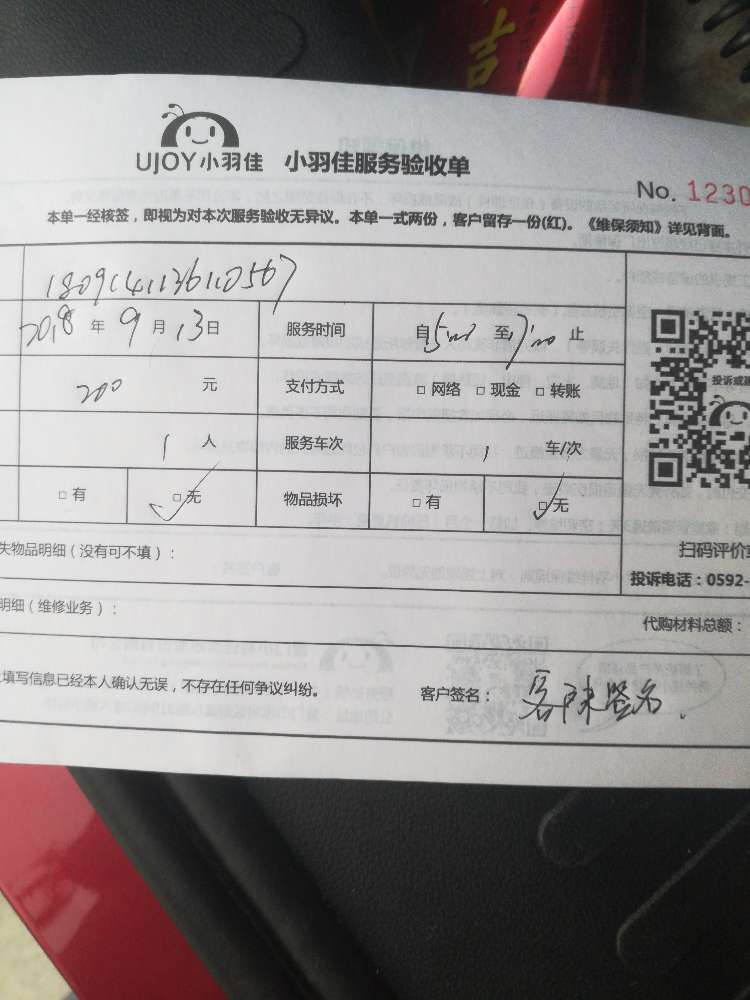 吉
UJOY小羽佳 小羽佳服务验收单
No. 1230
本单一经核签，即视为对本次服务验收无异议。本单一式两份，客户留存一份(红)。《维保须知》详见背面。
2018 年 9 月 13 日 服务时间 自 至 止
200 元 支付方式 □ 网络 □ 现金 □ 转账
1 人 服务车次 1 车/次
□ 有 □ 无 物品损坏 □ 有 □ 无
投诉或
失物品明细（没有可不填）：
扫码评价
投诉电话：0592-
明细（维修业务）：
代购材料总额：
填写信息已经本人确认无误，不存在任何争议纠纷。 客户签名： 客户未签名.